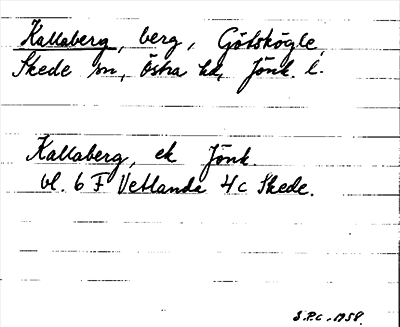 Kallaberg, berg, Götskögle,
Skede sn, östra hd, Jönk. l.
Kallaberg, ek Jönk.
bl. 6 F Vetlanda 4c Skede.
S.P.C. 1958.